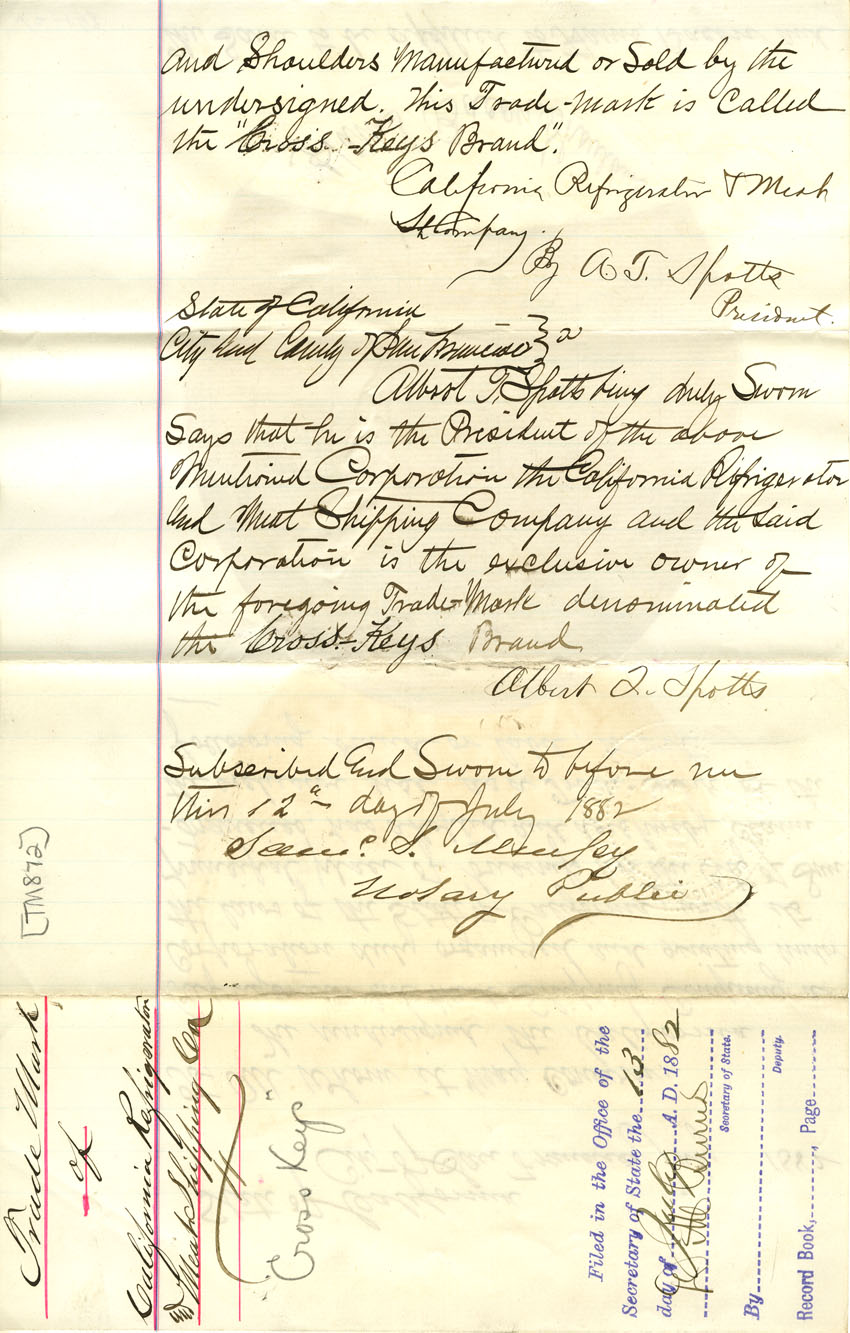 and Shoulders Manufactured or Sold by the
undersigned. This Trade-Mark is Called
the "Cross-Keys Brand".
California Refrigerator & Meat
Sh Company.
By A. T. Spotts
President.
State of California
City and County of San Francisco } ss
Albert T. Spotts being duly Sworn
Says that he is the President of the above
Mentioned Corporation the California Refrigerator
and Meat Shipping Company and the Said
Corporation is the exclusive owner of
the foregoing Trade-Mark denominated
the Cross-Keys Brand
Albert T. Spotts
Subscribed and Sworn to before me
this 12th day of July 1882
Saml. S.
Notary Public
[TM872]
Trade Mark
of
California Refrigerator
and Meat Shipping Co
"Cross Keys"
Filed in the Office of the
Secretary of State the 13
day of July A. D. 1882
Secretary of State.
By
Deputy.
Record Book, Page